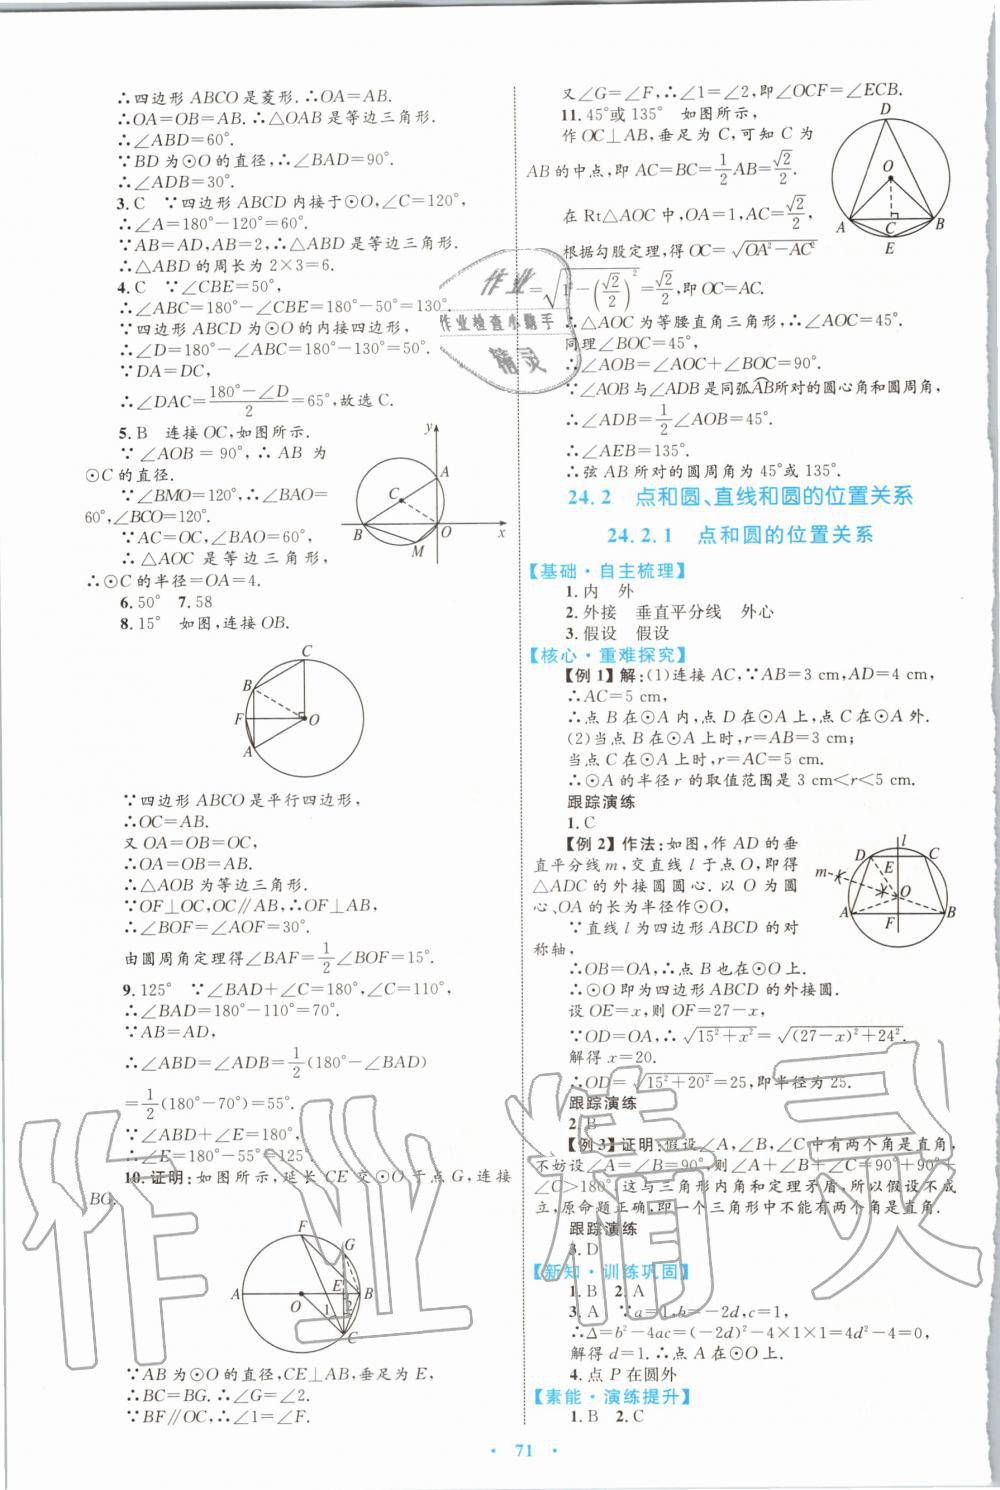 ∴四边形 ABCO 是菱形.∴OA=AB.
∴OA=OB=AB.∴△OAB 是等边三角形.
∴∠ABD=60°.
∵BD 为⊙O 的直径,∴∠BAD=90°.
∴∠ADB=30°.
3.C ∵四边形 ABCD 内接于⊙O,∠C=120°,
∴∠A=180°-120°=60°.
∵AB=AD,AB=2,∴△ABD 是等边三角形.
∴△ABD 的周长为 2×3=6.
4.C ∵∠CBE=50°,
∴∠ABC=180°-∠CBE=180°-50°=130°.
∵四边形 ABCD 为⊙O 的内接四边形,
∴∠D=180°-∠ABC=180°-130°=50°.
∵DA=DC,
∴∠DAC=(180°-∠D)/2=65°,故选 C.
5.B 连接 OC,如图所示.
∵∠AOB=90°,∴AB 为
⊙C 的直径.
∵∠BMO=120°,∴∠BAO=
60°,∠BCO=120°.
∵AC=OC,∠BAO=60°,
∴△AOC 是等边三角形,
∴⊙C 的半径=OA=4.
y
A
C
B
O
x
M
6.50° 7.58
8.15° 如图,连接 OB.
C
B
F
O
A
∵四边形 ABCO 是平行四边形,
∴OC=AB.
又 OA=OB=OC,
∴OA=OB=AB.
∴△AOB 为等边三角形.
∵OF⊥OC,OC∥AB,∴OF⊥AB.
∴∠BOF=∠AOF=30°.
由圆周角定理得∠BAF=1/2∠BOF=15°.
9.125° ∵∠BAD+∠C=180°,∠C=110°,
∴∠BAD=180°-110°=70°.
∵AB=AD,
∴∠ABD=∠ADB=1/2(180°-∠BAD)
=1/2(180°-70°)=55°.
∵∠ABD+∠E=180°,
∴∠E=180°-55°=125°.
10.证明:如图所示,延长 CE 交⊙O 于点 G,连接
BG.
F
G
E
A
O
B
1
2
C
∵AB 为⊙O 的直径,CE⊥AB,垂足为 E,
∴BC=BG.∴∠G=∠2.
∵BF∥OC,∴∠1=∠F.
又∠G=∠F,∴∠1=∠2,即∠OCF=∠ECB.
11.45°或135° 如图所示,
作 OC⊥AB,垂足为 C,可知 C 为
AB 的中点,即 AC=BC=1/2AB=√2/2.
在 Rt△AOC 中,OA=1,AC=√2/2,
根据勾股定理,得 OC=√(OA²-AC²)
=√(1²-(√2/2)²)=√2/2,即 OC=AC.
D
O
A
C
B
E
∴△AOC 为等腰直角三角形,∴∠AOC=45°.
同理∠BOC=45°.
∴∠AOB=∠AOC+∠BOC=90°.
∵∠AOB 与∠ADB 是同弧AB所对的圆心角和圆周角,
∴∠ADB=1/2∠AOB=45°.
∴∠AEB=135°.
∴弦 AB 所对的圆周角为 45°或 135°.
24.2 点和圆、直线和圆的位置关系
24.2.1 点和圆的位置关系
【基础·自主梳理】
1.内 外
2.外接 垂直平分线 外心
3.假设 假设
【核心·重难探究】
【例 1】解:(1)连接 AC,∵AB=3 cm,AD=4 cm,
∴AC=5 cm.
∴点 B 在⊙A 内,点 D 在⊙A 上,点 C 在⊙A 外.
(2)当点 B 在⊙A 上时,r=AB=3 cm;
当点 C 在⊙A 上时,r=AC=5 cm.
∴⊙A 的半径 r 的取值范围是 3 cm<r<5 cm.
跟踪演练
1.C
【例 2】作法:如图,作 AD 的垂
直平分线 m,交直线 l 于点 O,即得
△ADC 的外接圆圆心.以 O 为圆
心、OA 的长为半径作⊙O,
∵直线 l 为四边形 ABCD 的对
称轴,
l
D
C
E
m
O
A
F
B
∴OB=OA,∴点 B 也在⊙O 上.
∴⊙O 即为四边形 ABCD 的外接圆.
设 OE=x,则 OF=27-x,
∵OD=OA,∴√(15²+x²)=√((27-x)²+24²).
解得 x=20.
∴OD=√(15²+20²)=25,即半径为 25.
跟踪演练
2.B
【例 3】证明:假设∠A,∠B,∠C 中有两个角是直角,
不妨设∠A=∠B=90°,则∠A+∠B+∠C=90°+90°+
∠C>180°,这与三角形内角和定理矛盾,所以假设不成
立,原命题正确,即一个三角形中不能有两个角是直角.
跟踪演练
3.D
【新知·训练巩固】
1.B 2.A
3.A ∵a=1,b=-2d,c=1,
∴Δ=b²-4ac=(-2d)²-4×1×1=4d²-4=0,
解得 d=1.∴点 A 在⊙O 上.
4.点 P 在圆外
【素能·演练提升】
1.B 2.C
· 71 ·
作业
作业检查小助手
精灵
作业精灵